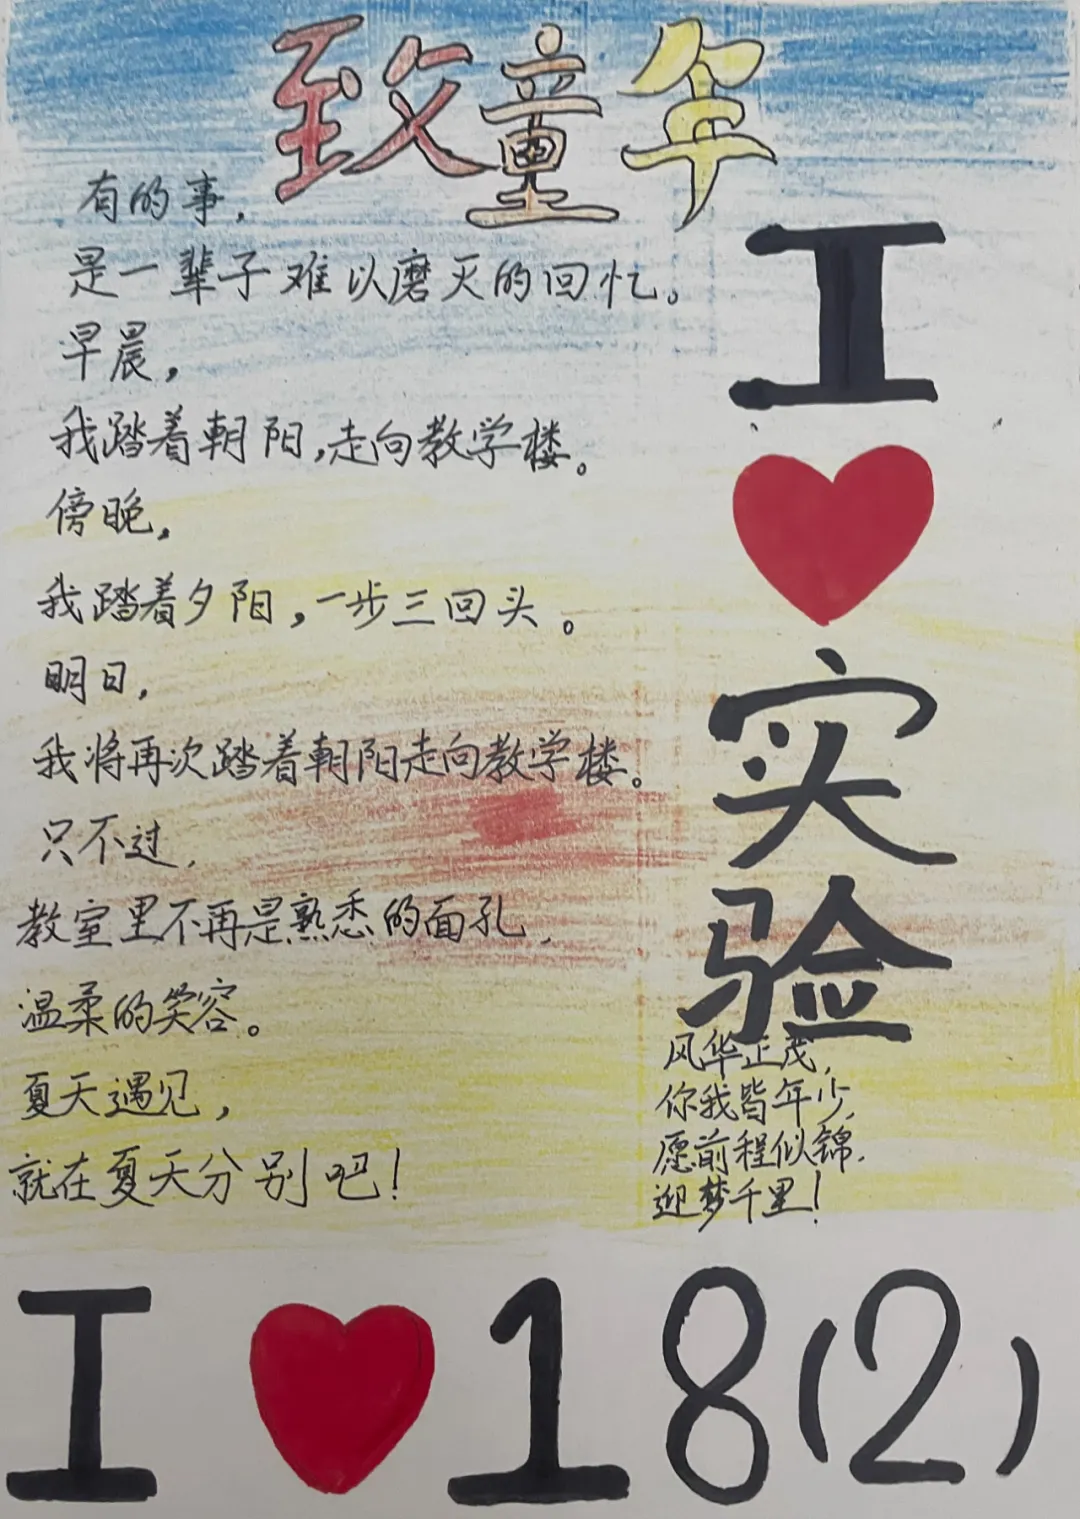 致童年
有的事，
是一辈子难以磨灭的回忆。
早晨，
我踏着朝阳，走向教学楼。
傍晚，
我踏着夕阳，一步三回头。
明日，
我将再次踏着朝阳走向教学楼。
只不过，
教室里不再是熟悉的面孔，
温柔的笑容。
夏天遇见，
就在夏天分别吧！
I
❤
实
验
风华正茂，
你我皆年少，
愿前程似锦，
迎梦千里！
I ❤ 18(2)